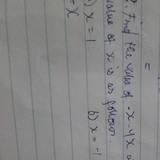 =
2. Find the value of -x-4x w
value of x is as follows
a) x = 1 b) x = -1
= x